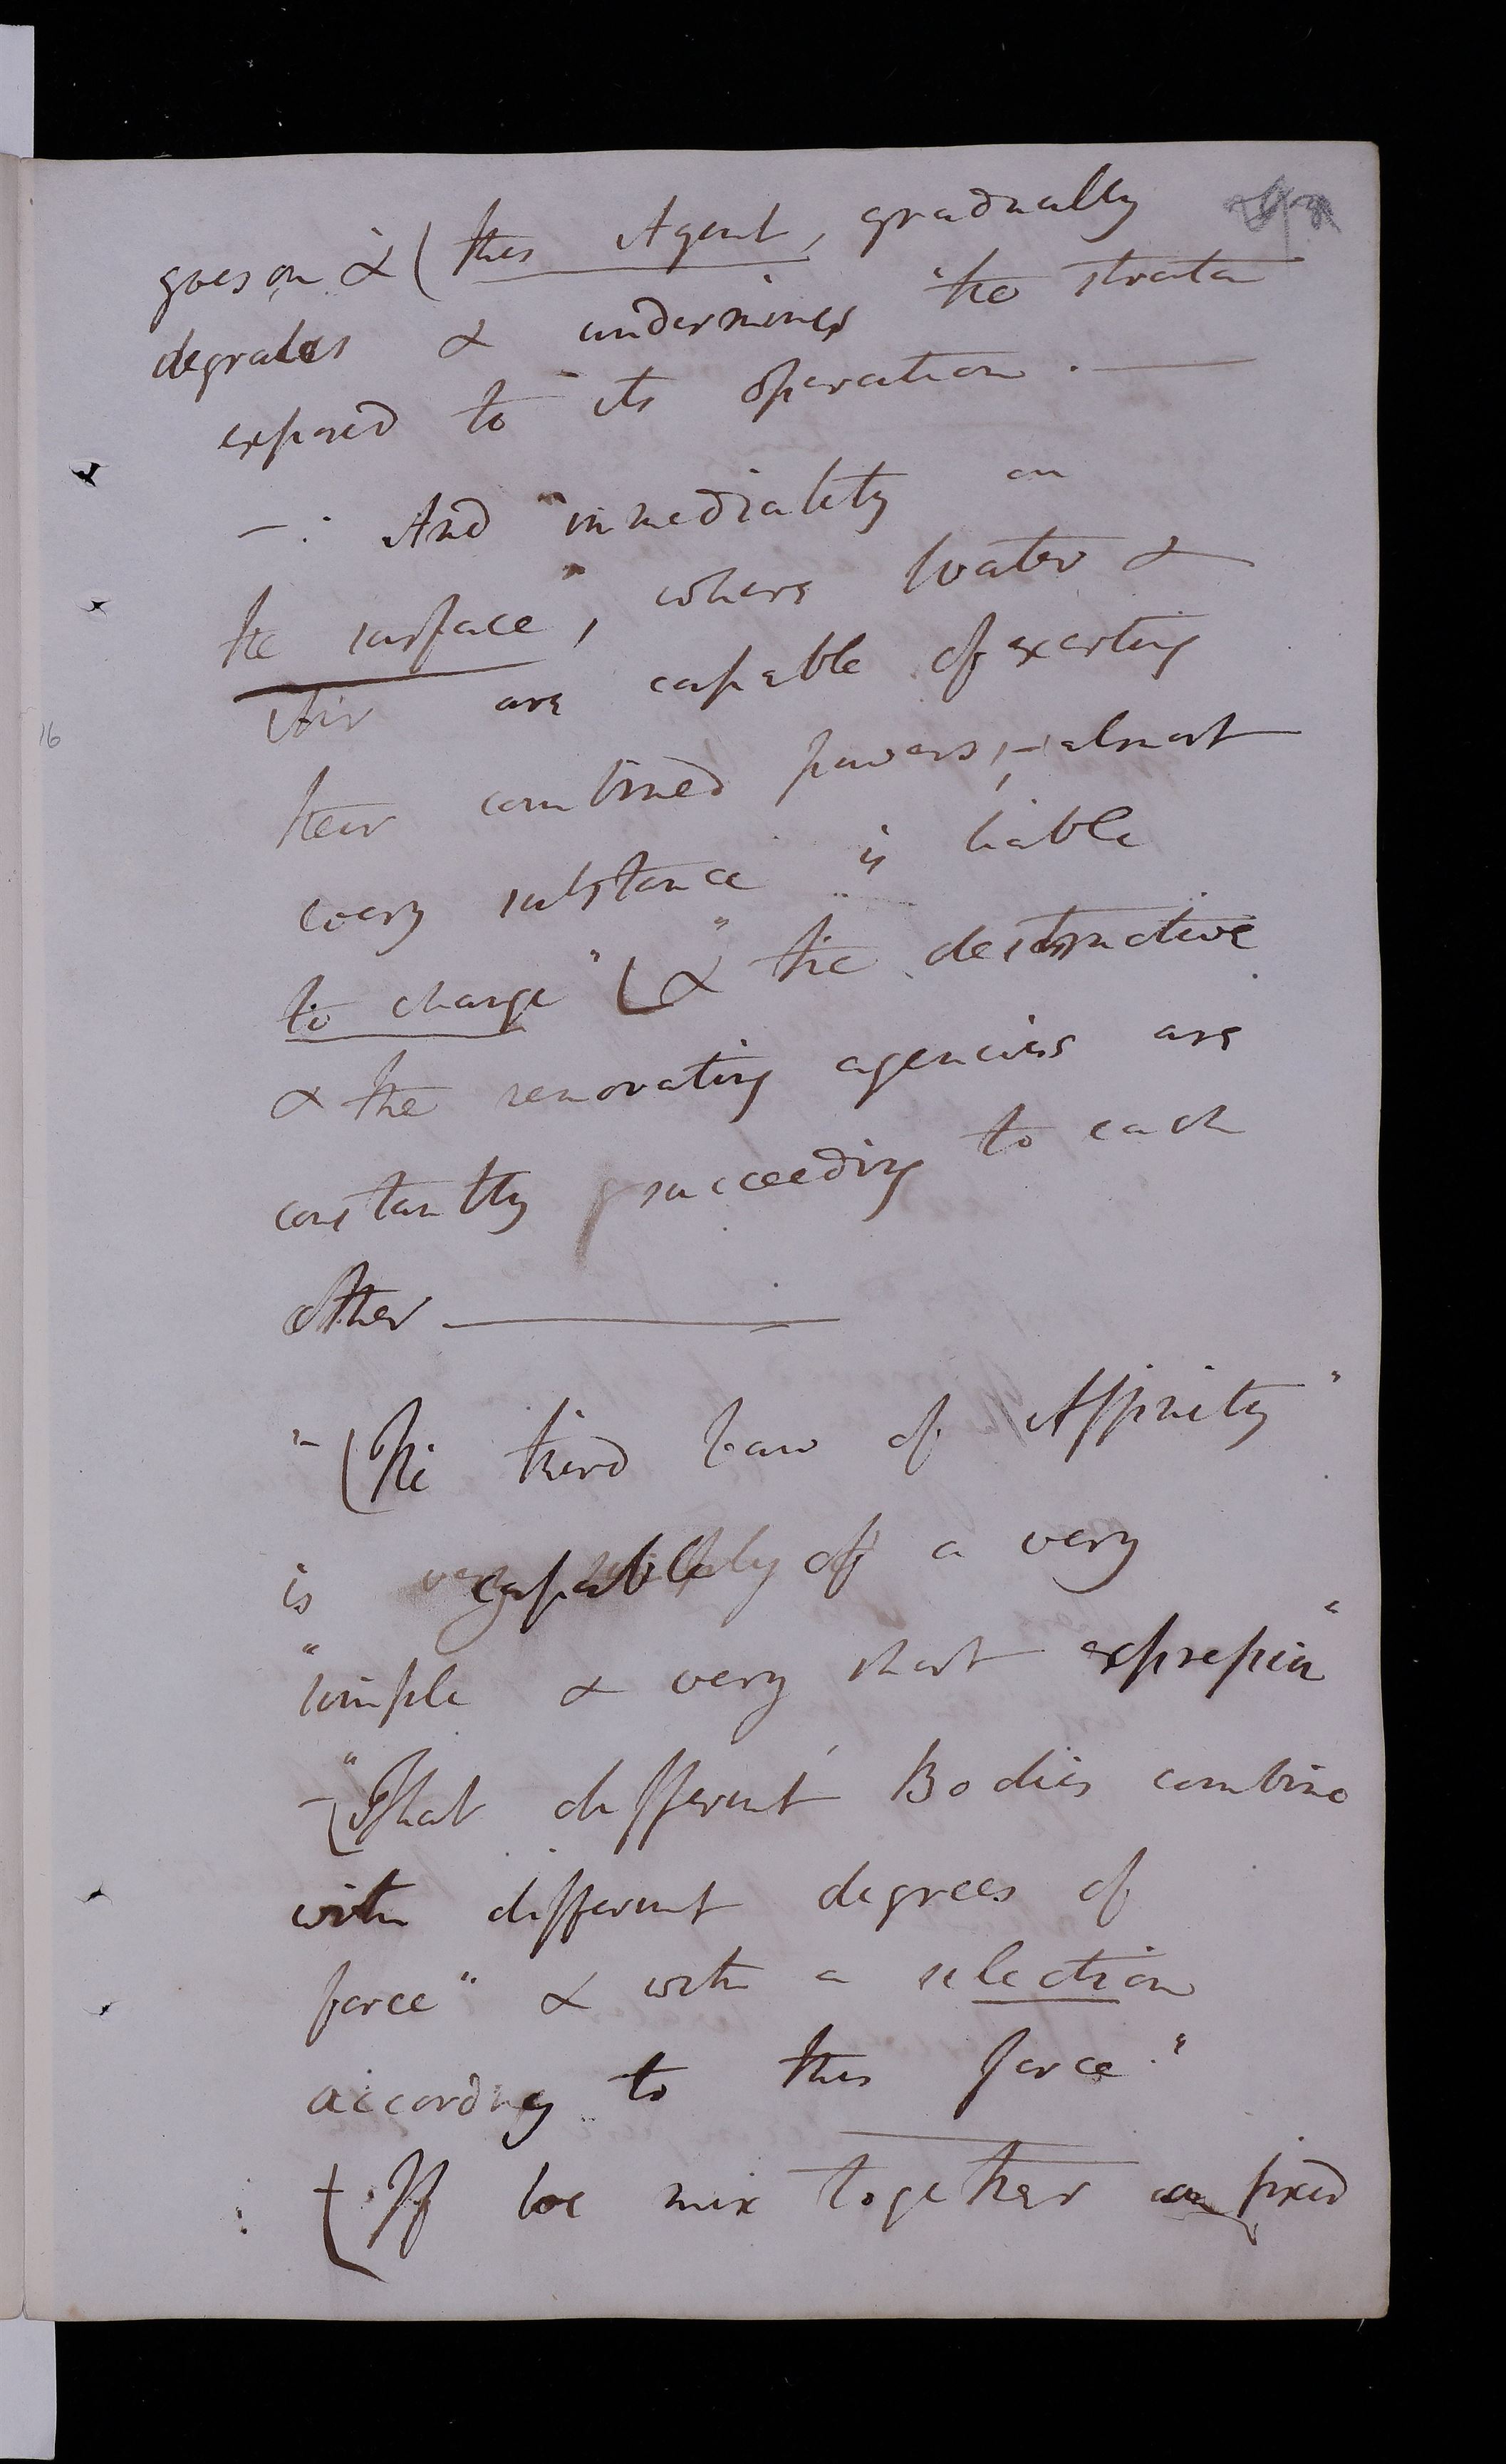 goes on & ( this Agent, gradually
degrades & undermines the strata
exposed to its operation. —
— : And immediately on
the surface", where Water &
Air are capable of exerting
their combined powers, — almost
every substance is liable
to change" ( & the destructive
& the renovating agencies are
constantly succeeding to each
other —
"— ( The third Law of Affinity"
is capable of a very
"simple & very short expression"
— "( That different Bodies combine
with different degrees of
force" & with a selection
according to this force."
( If we mix together fixed
16